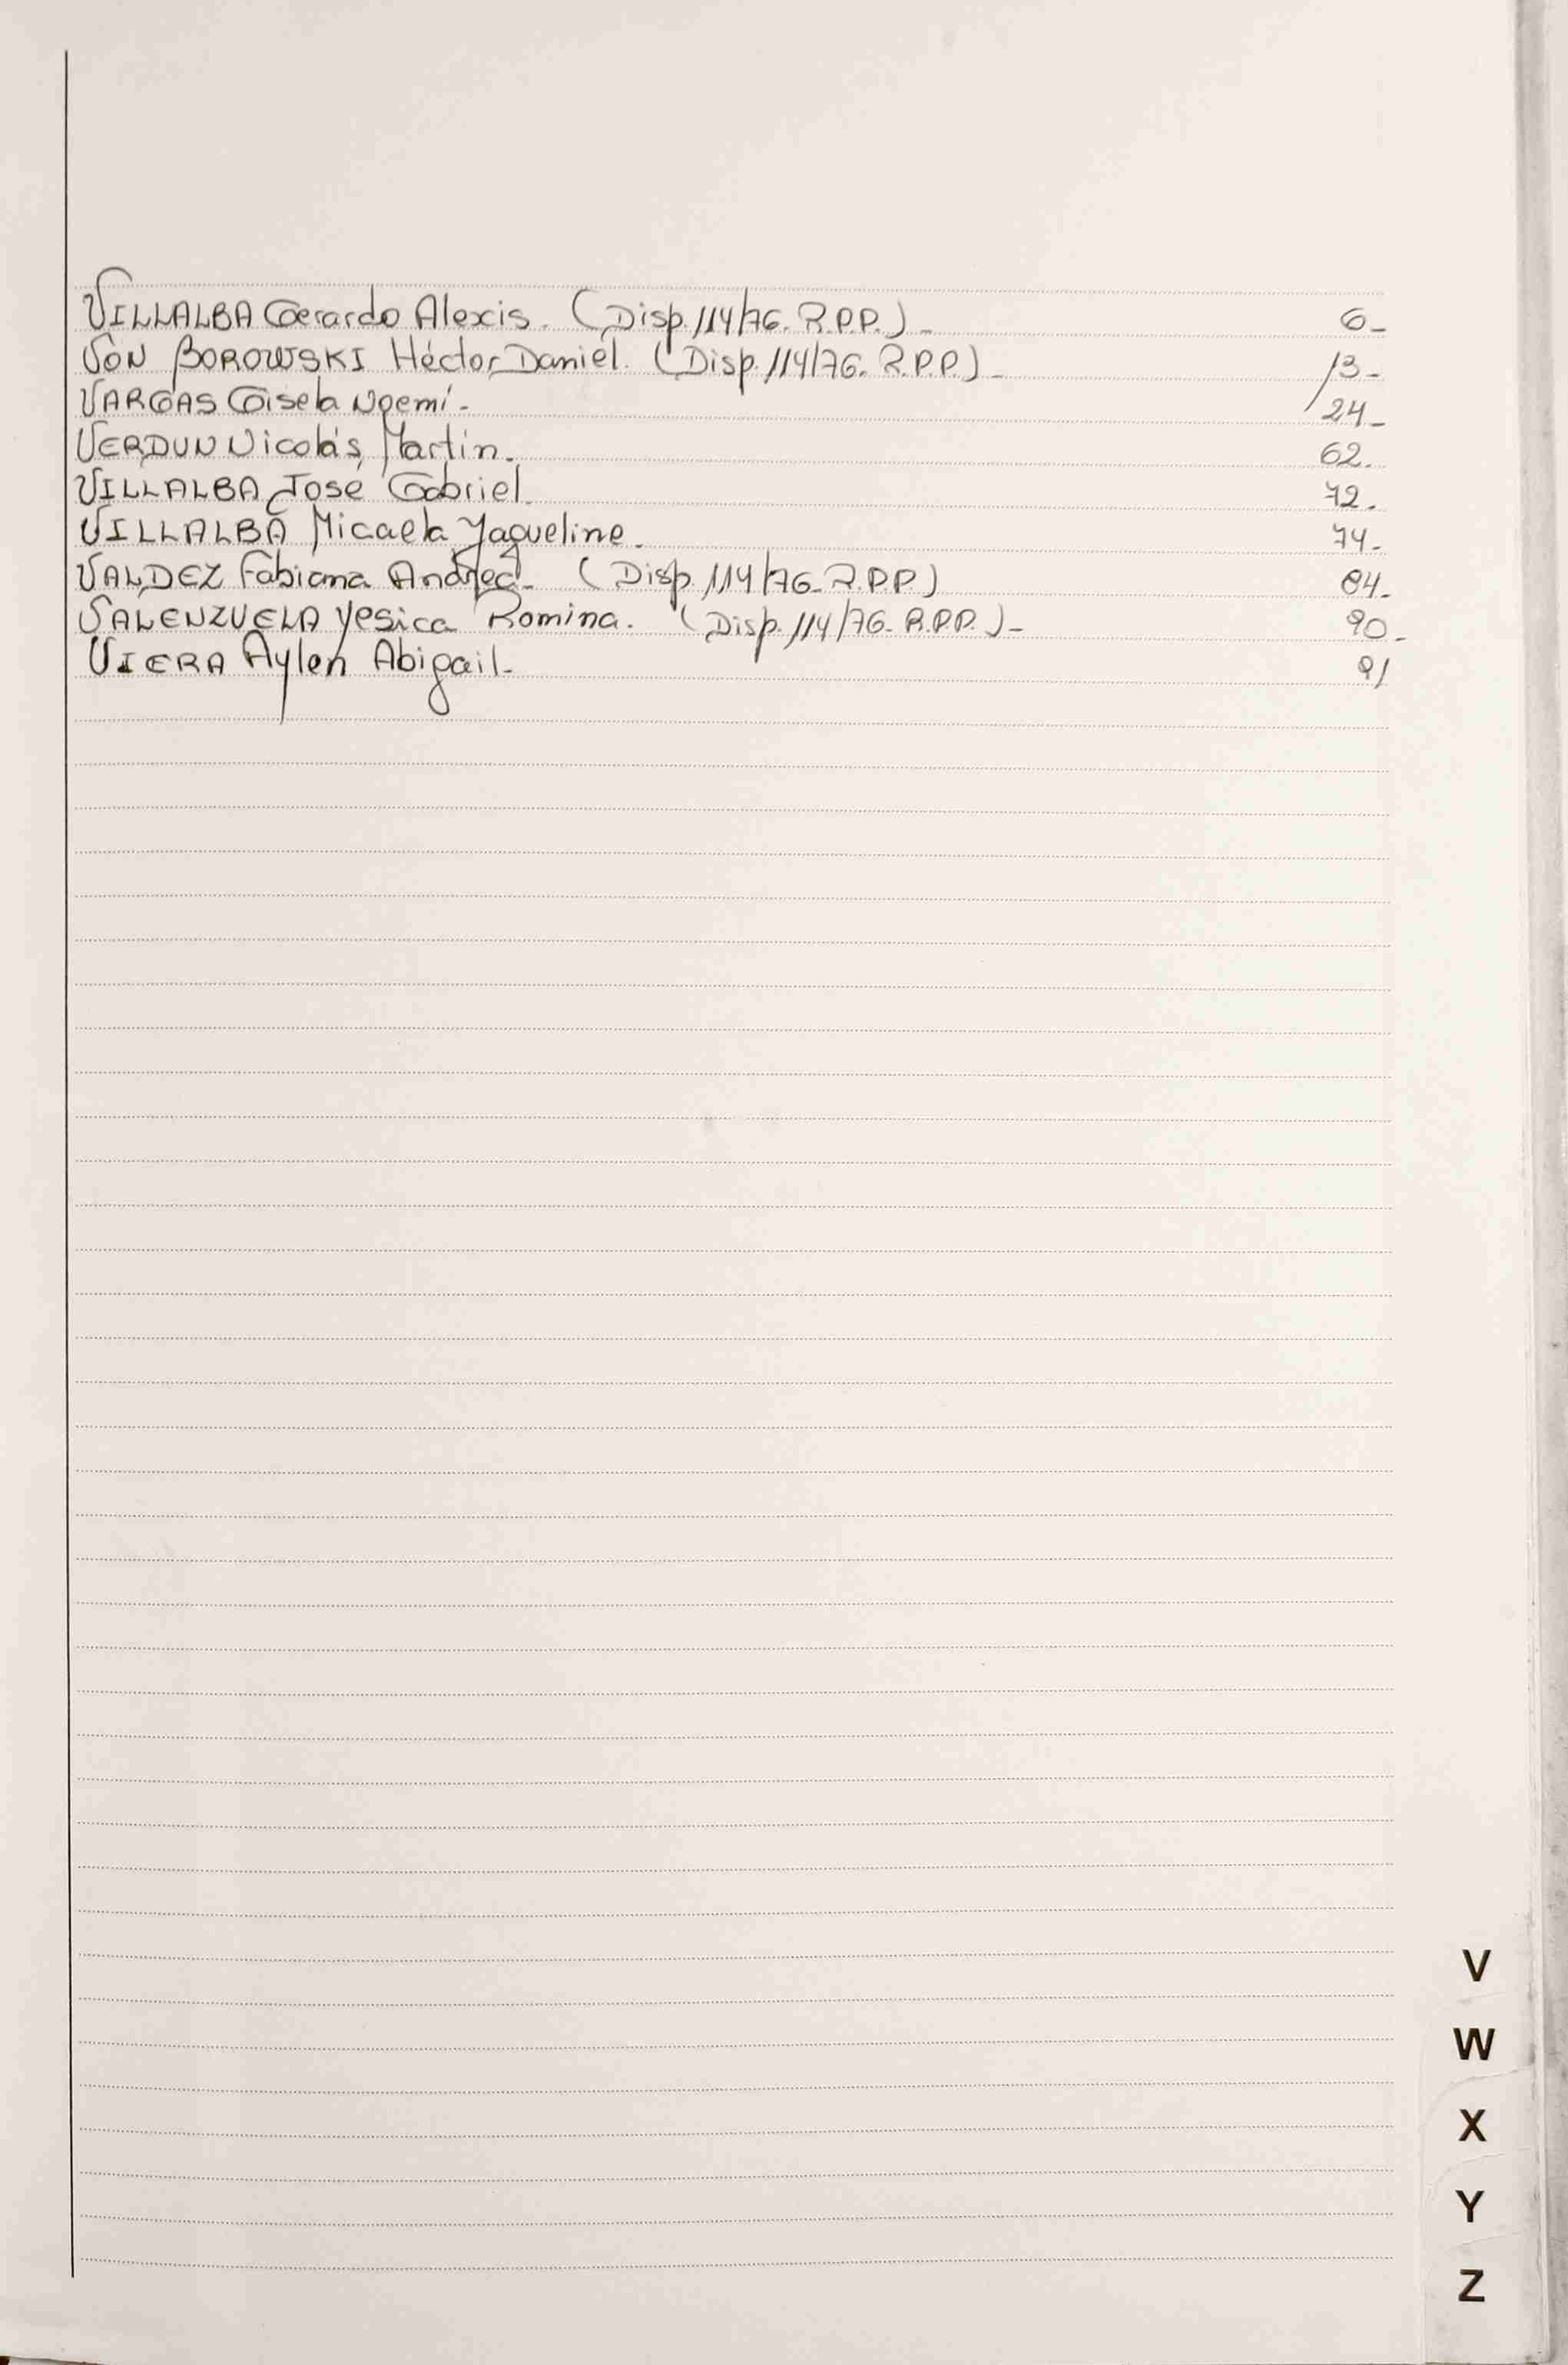 VILLALBA Gerardo Alexis. (Disp. 114/76. R.P.P.)_ 6_
VON BOROWSKI Héctor Daniel. (Disp. 114/76. R.P.P.)_ 13_
VARGAS Gisela Noemí_ 24_
VERDUN Nicolás Martín. 62.
VILLALBA José Gabriel. 72.
VILLALBA Micaela Yaqueline. 74_
VALDEZ Fabiana Andrea_ (Disp. 114/76_R.P.P.) 84_
VALENZUELA Yesica Romina. (Disp. 114/76_R.P.P.)_ 90_
VIERA Aylen Abigail_ 91
V
W
X
Y
Z